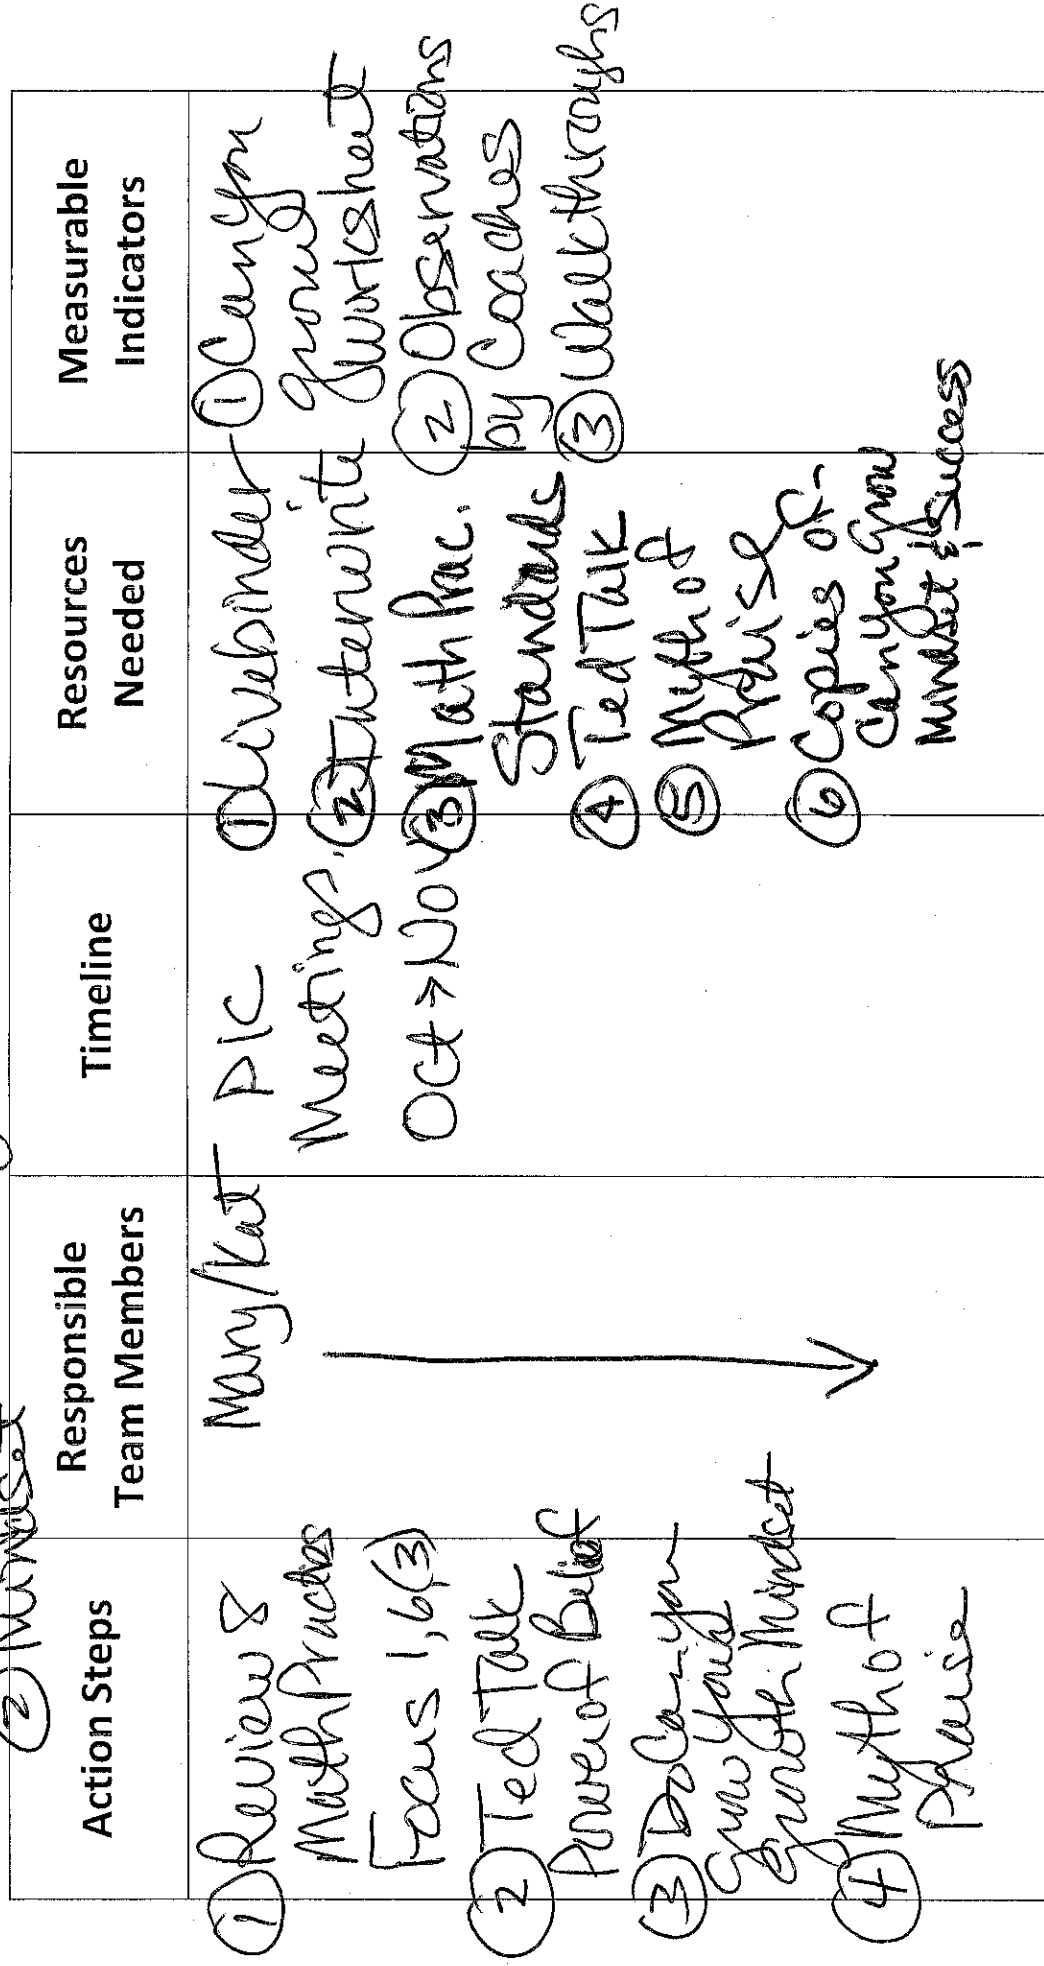 ② Mindset
Action Steps
Responsible
Team Members
Timeline
Resources
Needed
Measurable
Indicators
① Review 8
Math Practices
Focus 1, 6, (3)
② Ted Talk
Power of Belief
③ Do Can you
grow your
growth mindset
④ Myth of
Praise
Mary/Kat
PIC
Meetings
Oct → Nov
① Livebinder
② Interwrite
③ Math Prac.
Standards
④ Ted Talk
⑤ Myth of
Praise
⑥ Copies of-
Can you grow
Mindset & Success
① Can you
grow
worksheet
② Observations
by Coaches
③ Walkthroughs